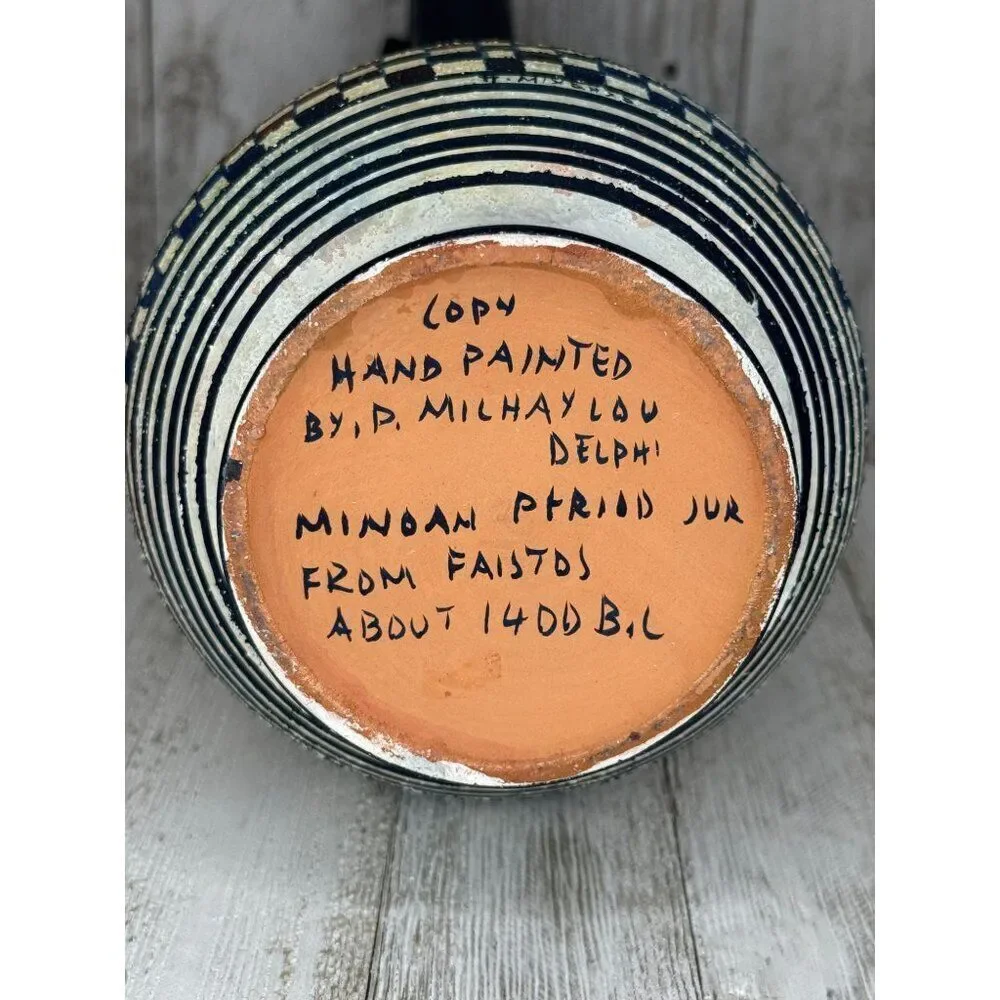 COPY
HAND PAINTED
BY, D. MILHAYLOU
DELPHI
MINOAN PERIOD JUR
FROM FAISTOS
ABOUT 1400 B.C